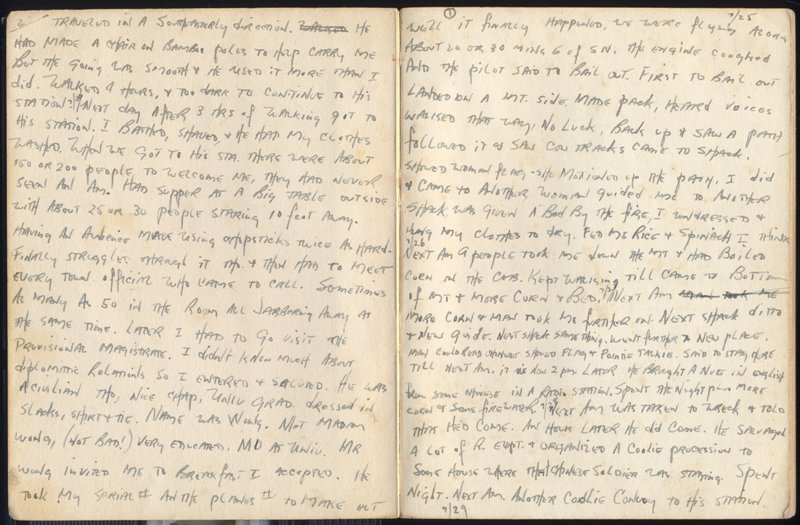 2 TRAVELED IN A SOUTHEASTERLY DIRECTION. HE
HAD MADE A CHAIR ON BAMBOO POLES TO HELP CARRY ME
BUT THE GOING WAS SMOOTH & HE USED IT MORE THAN I
DID. WALKED 4 HOURS, & TOO DARK TO CONTINUE TO HIS
STATION. NEXT DAY AFTER 3 HRS OF WALKING GOT TO
HIS STATION. I BATHED, SHAVED, & HE HAD MY CLOTHES
WASHED. WHEN WE GOT TO HIS STA. THERE WERE ABOUT
150 OR 200 PEOPLE, TO WELCOME ME, THEY HAD NEVER
SEEN AN AM. HAD SUPPER AT A BIG TABLE OUTSIDE
WITH ABOUT 25 OR 30 PEOPLE STARING 10 FOOT AWAY.
HAVING AN AUDIENCE MADE USING CHOPSTICKS TWICE AS HARD.
FINALLY STRUGGLED THROUGH IT THO. & THEN HAD TO MEET
EVERY TOWN OFFICIAL WHO CAME TO CALL. SOMETIMES
AS MANY AS 50 IN THE ROOM ALL JABBERING AWAY AT
THE SAME TIME. LATER I HAD TO GO VISIT THE
PROVISIONAL MAGISTRATE. I DIDN'T KNOW MUCH ABOUT
DIPLOMATIC RELATIONS SO I ENTERED & SALUTED. HE WAS
A CIVILIAN THO, NICE CHAP, UNIV GRAD DRESSED IN
SLACKS, SHIRT & TIE. NAME WAS WONG. MET MADAM
WONG, (NOT BAD!) VERY EDUCATED, MD AT UNIV. MR
WONG INVITED ME TO BREAKFAST I ACCEPTED. HE
TOOK MY SERIAL # AN THE PLANES # TO MAKE OUT
① 7/25
WELL IT FINALLY HAPPENED. WE WERE FLYING ALONG
ABOUT 20 OR 30 MINS E OF SN. THE ENGINE COUGHED
AND THE PILOT SAID TO BAIL OUT. FIRST TO BAIL OUT
LANDED ON A MT. SIDE. MADE PACK, HEARD VOICES
WALKED THAT WAY, NO LUCK, BACK UP & SAW A PATH
FOLLOWED IT & SAW COW TRACKS CAME TO SHACK.
SHOWED WOMAN FLAG - SHE MOTIONED UP THE PATH, I DID
& CAME TO ANOTHER WOMAN GUIDED ME TO ANOTHER
SHACK WAS GIVEN A BED BY THE FIRE, I UNDRESSED &
HUNG MY CLOTHES TO DRY. FED ME RICE & SPINACH I THINK
7/26
NEXT AM 9 PEOPLE TOOK ME DOWN THE MT & HAD BOILED
CORN ON THE COB. KEPT WALKING TILL CAME TO BOTTOM
OF MT & MORE CORN & BED. 7/27 NEXT AM MAN TOOK ME
MORE CORN & MAN TOOK ME FURTHER ON. NEXT SHACK DITTO
& NEW GUIDE. NEXT SHACK SAME THING. WENT FURTHER TO NEW PLACE.
MAN COULD READ CHINESE SHOWED FLAG & POINTIE TALKIE. SAID TO STAY HERE
TILL NEXT AM. IT IS NOW 2 PM LATER HE BROUGHT A NOTE IN ENGLISH
FROM SOME CHINESE IN A RADIO STATION. SPENT THE NIGHT PLUS MORE
CORN & SOME FIREWATER. 7/28 NEXT AM WAS TAKEN TO WRECK & TOLD
THAT HE'D COME. AN HOUR LATER HE DID COME. HE SALVAGED
A LOT OF R. EUPT. & ORGANIZED A COOLIE PROCESSION TO
SOME HOUSE WHERE THE CHINESE SOLDIER WAS STAYING. SPENT
NIGHT. NEXT AM. ANOTHER COOLIE CONVOY TO HIS STATION.
7/29